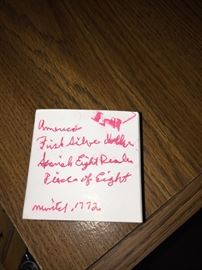 America
First Silver Dollar
Spanish Eight Reales
Pieces of Eight
minted 1772